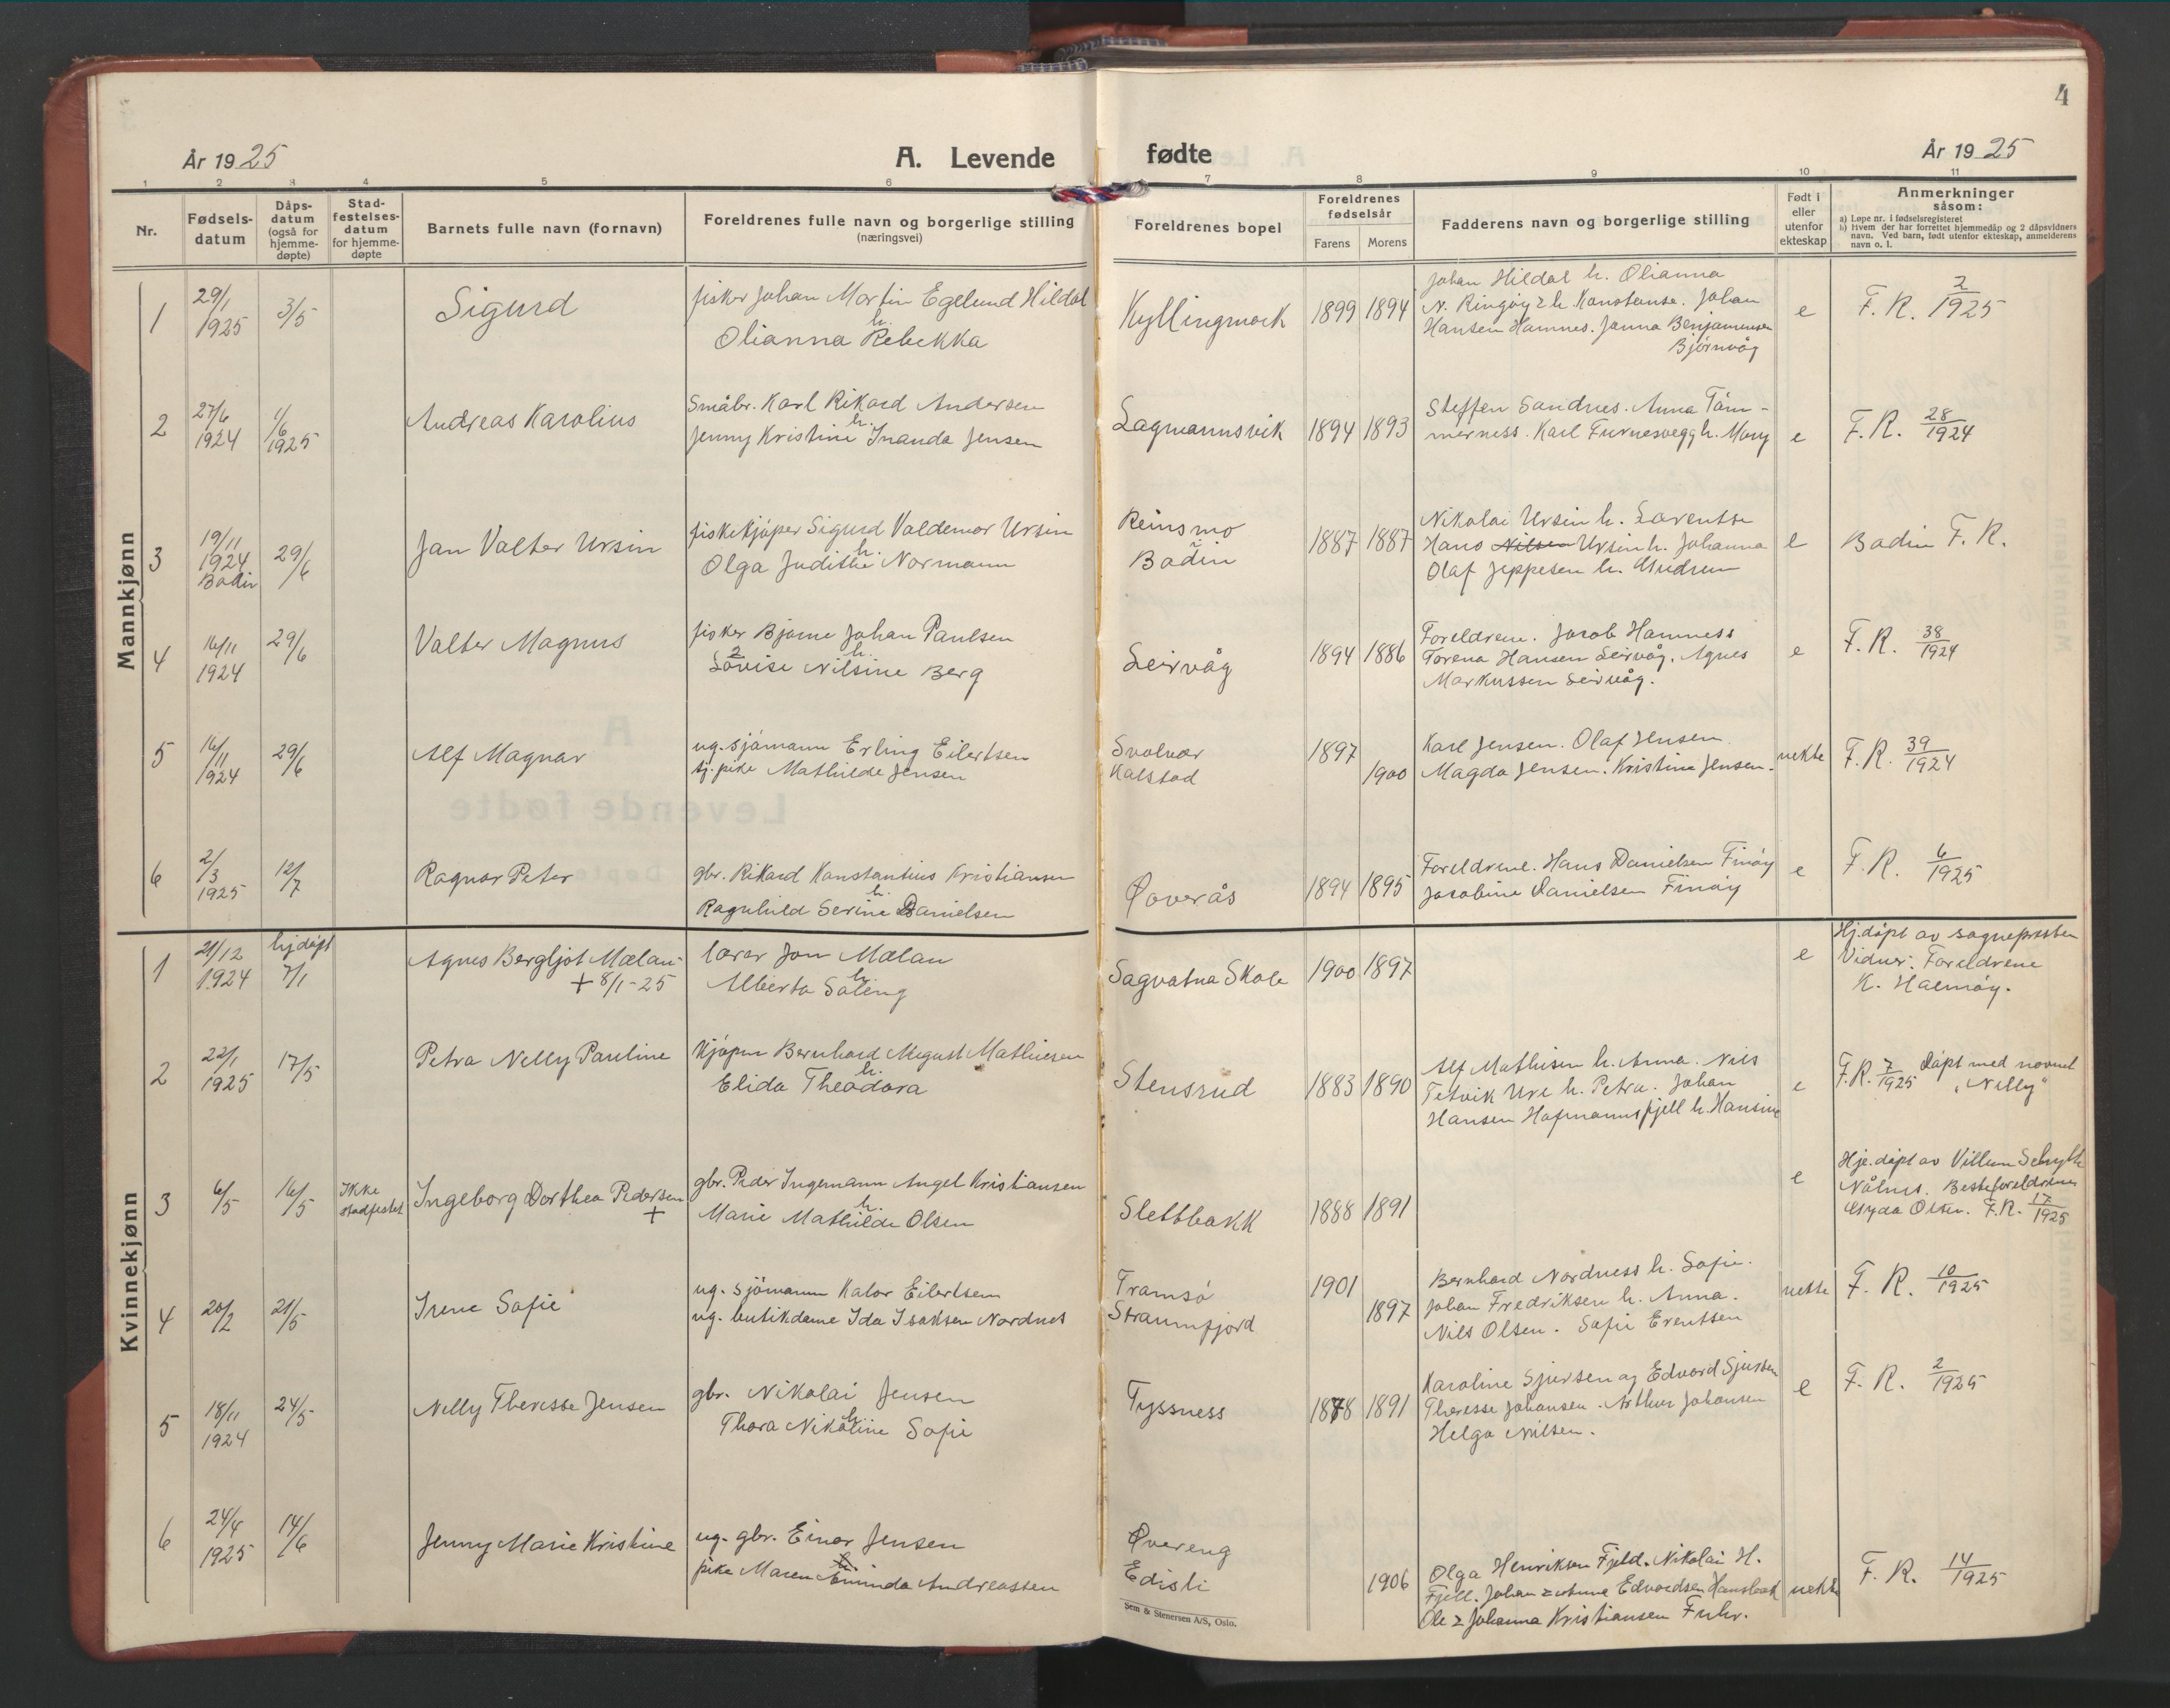 4
År 1925
A. Levende fødte
År 1925
1 2 3 4 5 6 7 8 9 10 11
Nr.
Fødsels-
datum
Dåps-
datum
(også for
hjemme-
døpte)
Stad-
festelses-
datum
for hjemme-
døpte
Barnets fulle navn (fornavn)
Foreldrenes fulle navn og borgerlige stilling
(næringsvei)
Foreldrenes bopel
Foreldrenes
fødselsår
Farens Morens
Fadderens navn og borgerlige stilling
Født i
eller
utenfor
ekteskap
Anmerkninger
såsom:
a) Løpe nr. i fødselsregisteret
b) Hvem der har forrettet hjemmedåp og 2 dåpsvidners
navn. Ved barn, født utenfor ekteskap, anmelderens
navn o. l.
Mannkjønn
1
29/1
1925
3/5
Sigurd
fisker Johan Martin Egelund Hildal
h.
Olianna Rebekka
Kyllingmark
1899 1894
Johan Hildal h. Olianna
N. Ringøy & h. Konstanse. Johan
Hansen Hamnes. Janna Benjaminsen
Bjørnvåg
e
F. R. 2/1925
2
27/6
1924
1/6
1925
Andreas Karolius
Småbr. Karl Rikard Andersen
h.
Jenny Kristine Inanda Jensen
Lagmannsvik
1894 1893
Steffen Sandnes. Anna Tøm-
merness. Karl Furnesvegg h. Mary
e
F. R. 28/1924
3
19/11
1924
Bodin
29/6
Jan Valter Ursin
fiskekjøper Sigurd Valdemar Ursin
h.
Olga Judithe Normann
Reinsmo
i
Bodin
1887 1887
Nikolai Ursin h. Lorentse
Hans Nilsen Ursin h. Johanna
Olaf Jeppesen h. Gudrun
e
Bodin F. R.
4
16/11
1924
29/6
Valter Magnus
fisker Bjarne Johan Paulsen
2 h.
Lovise Nilsine Berg
Leirvåg
1894 1886
Foreldrene. Jacob Hamness
Torena Hansen Leirvåg. Agnes
Markussen Leirvåg.
e
F. R. 38/1924
5
16/11
1924
29/6
Alf Magnar
ug. sjømann Erling Eilertsen
tj. pike Mathilde Jensen
Svolvær
Kalstad
1897
1900
Karl Jensen. Olaf Jensen
Magda Jensen. Kristine Jensen.
uekte
F. R. 39/1924
6
2/3
1925
12/7
Ragnar Peter
gbr. Rikard Konstantius Kristiansen
h.
Ragnhild Serine Danielsen
Øverås
1894 1895
Foreldrene. Hans Danielsen Finøy
Jacobine Danielsen Finøy
e
F. R. 6/1925
Kvinnekjønn
1
21/12
1924
hj døpt
7/1
Agnes Bergljot Mælan
+ 8/1-25
lærer Jon Mælan
h.
Alberta Soleng
Sagvatna Skole
1900 1897
e
Hj.døpt av sogneprsten
Vidner: Foreldrene
K. Halmøy.
2
22/1
1925
17/5
Petra Nelly Pauline
Kjøpm Bernhard August Mathiesen
h.
Elida Theodora
Stensrud
1883 1890
Alf Mathisen h. Anna. Nils
Tetvik Ure h. Petra. Johan
Hansen Hafmannsfjell h. Hansine
e
F. R. 7/1925 Døpt med navnet
„Nelly“
3
6/5
16/5
Ikke
stadfestet
Ingeborg Dorthea Pedersen
+
gbr. Peder Ingemann Angel Kristiansen
h.
Marie Mathilde Olsen
Slettbakk
1888 1891
e
Hje.døpt av Villum Schytte
Nålnes. Besteforeldrene
Gyda Olsen. F. R. 17/1925
4
20/2
21/5
Irene Sofie
ug. sjømann Kalor Eilertsen
ug. butikdame Ida Isaksen Nordnes
Tromsø
Straumfjord
1901
1897
Bernhard Nordness h. Sofie.
Johan Fredriksen h. Anna.
Nils Olsen. Sofie Evertsen
uekte
F. R. 10/1925
5
18/11
1924
24/5
Nelly Theresse Jensen
gbr. Nikolai Jensen
h.
Thora Nikoline Sofie
Tyssness
1878 1891
Karoline Sjursen og Edvard Sjursen
Theresse Johansen. Arthur Johansen
Helga Nilsen.
e
F. R. 2/1925
6
24/4
1925
14/6
Jenny Marie Kristine
ug. gbr. Einar Jensen
h.
pike Maren Aminda Andreassen
Øvereng
Edisli
1906
Olga Henriksen Fjeld. Nikolai H.
Fjell. Johan & Anna Edvardsen Hansbak
Ole & Johanna Kristiansen Fuhr.
uekte
F. R. 14/1925
Sem & Stenersen A/S, Oslo.